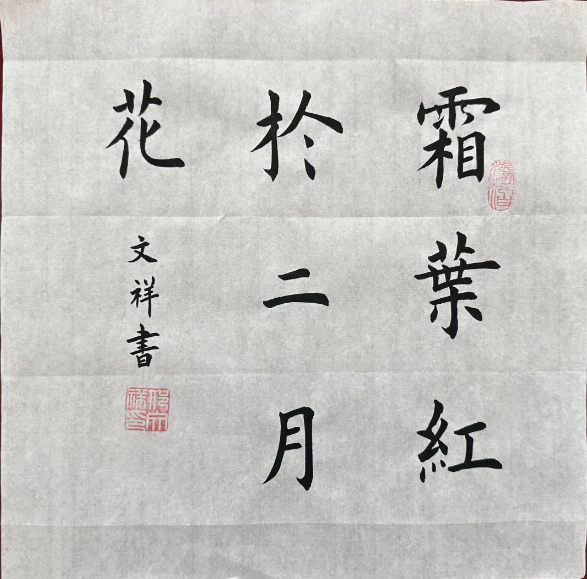 霜葉紅
於二月
花
文祥書